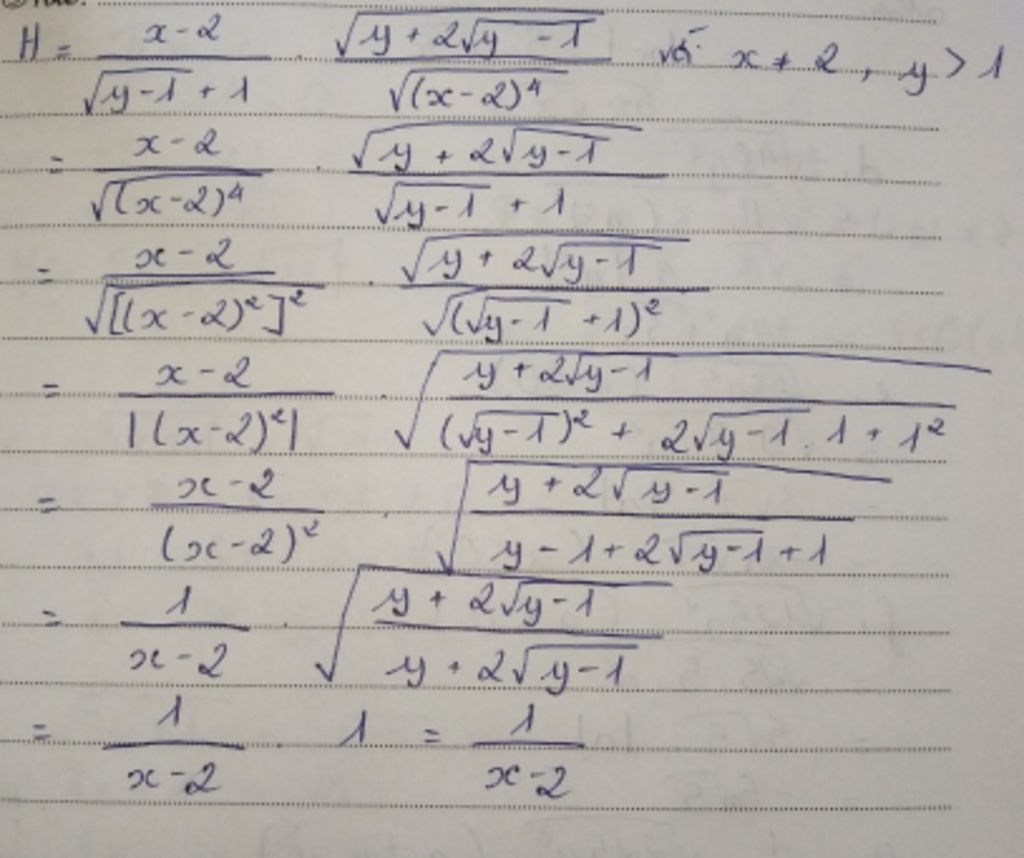 H = \frac{x-2}{\sqrt{y-1}+1} \cdot \frac{\sqrt{y+2\sqrt{y-1}}}{\sqrt{(x-2)^4}} với x ≠ 2, y > 1
= \frac{x-2}{\sqrt{(x-2)^4}} \cdot \frac{\sqrt{y+2\sqrt{y-1}}}{\sqrt{y-1}+1}
= \frac{x-2}{\sqrt{[(x-2)^2]^2}} \cdot \frac{\sqrt{y+2\sqrt{y-1}}}{\sqrt{(\sqrt{y-1}+1)^2}}
= \frac{x-2}{|(x-2)^2|} \cdot \sqrt{\frac{y+2\sqrt{y-1}}{(\sqrt{y-1})^2+2\sqrt{y-1}.1+1^2}}
= \frac{x-2}{(x-2)^2} \cdot \sqrt{\frac{y+2\sqrt{y-1}}{y-1+2\sqrt{y-1}+1}}
= \frac{1}{x-2} \cdot \sqrt{\frac{y+2\sqrt{y-1}}{y+2\sqrt{y-1}}}
= \frac{1}{x-2} \cdot 1 = \frac{1}{x-2}